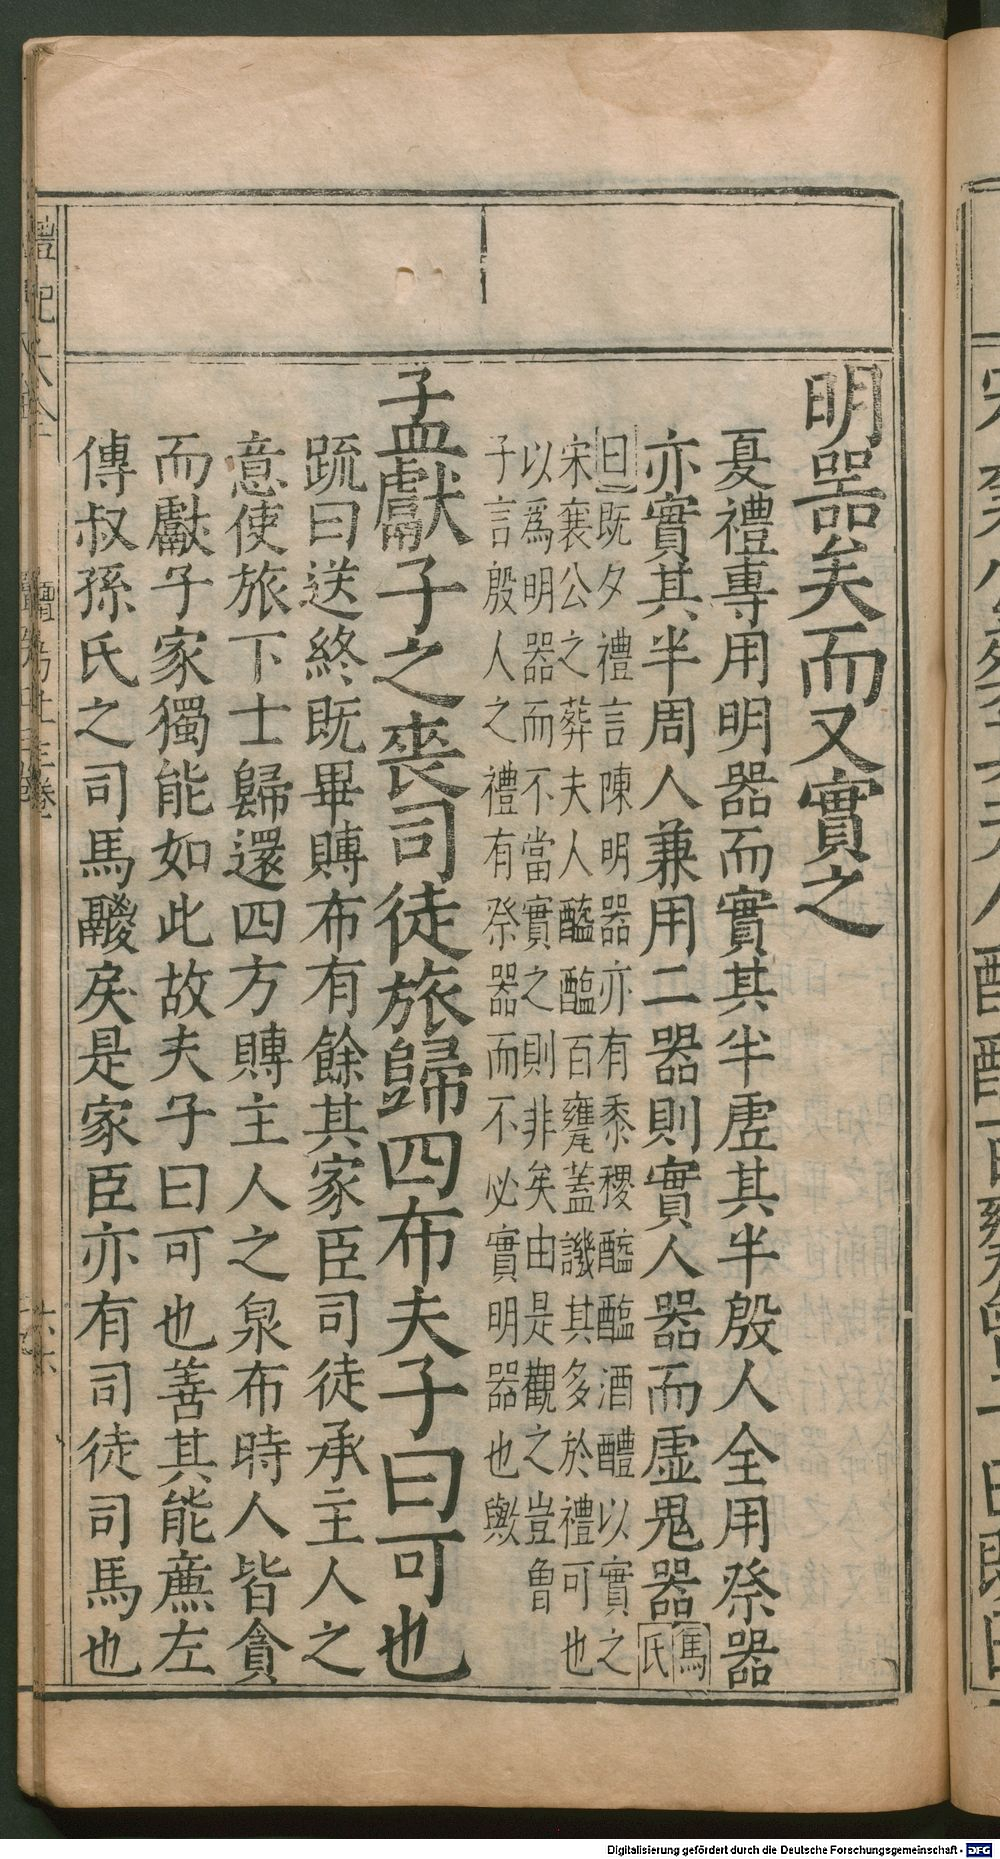 明器矣而又實之
夏禮專用明器而實其半虛其半殷人全用祭器
亦實其半周人兼用二器則實人器而虛鬼器馬氏
曰既夕禮言陳明器亦有黍稷醯醢酒醴以實之
宋襄公之葬夫人醯醢百甕蓋譏其多於禮可也
以爲明器而不當實之則非矣由是觀之豈魯
子言殷人之禮有祭器而不必實明器也歟
孟獻子之喪司徒旅歸四布夫子曰可也
疏曰送終既畢賻布有餘其家臣司徒承主人之
意使旅下士歸還四方賻主人之泉布時人皆貪
而獻子家獨能如此故夫子曰可也善其能亷左
傳叔孫氏之司馬鬷戾是家臣亦有司徒司馬也
Digitalisierung gefördert durch die Deutsche Forschungsgemeinschaft - DFG